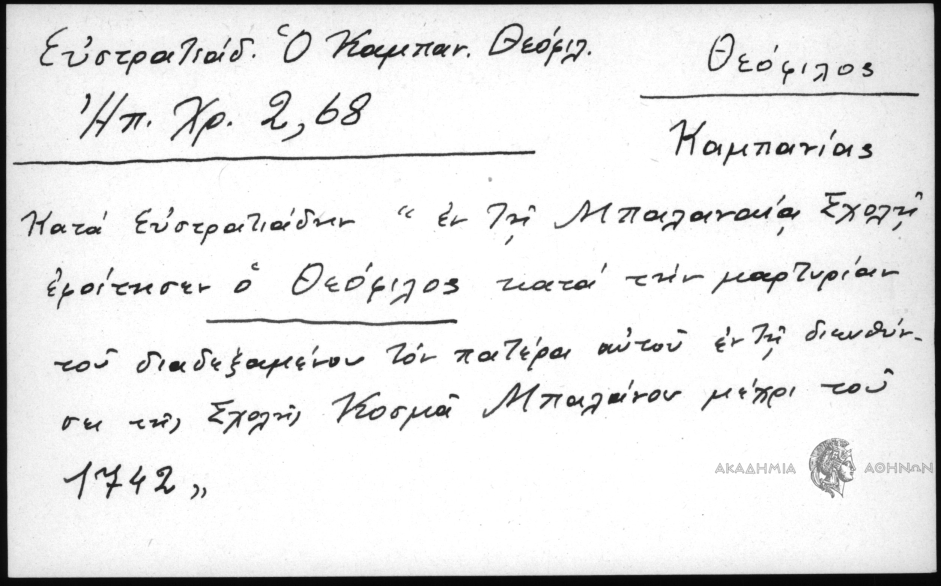 Εὐστρατιάδ. Ὁ Καμπαν. Θεόφιλ.
Ἠπ. Χρ. 2,68
Θεόφιλος
Καμπανίας
Κατά Εὐστρατιάδην "ἐν τῇ Μπαλαναίᾳ Σχολῇ
ἐφοίτησεν ὁ Θεόφιλος κατά τήν μαρτυρίαν
τοῦ διαδεξαμένου τόν πατέρα αὐτοῦ ἐν τῇ διευθύν-
σει τῆς Σχολῆς Κοσμᾶ Μπαλάνου μέχρι τοῦ
1742„
ΑΚΑΔΗΜΙΑ ΑΘΗΝΩΝ